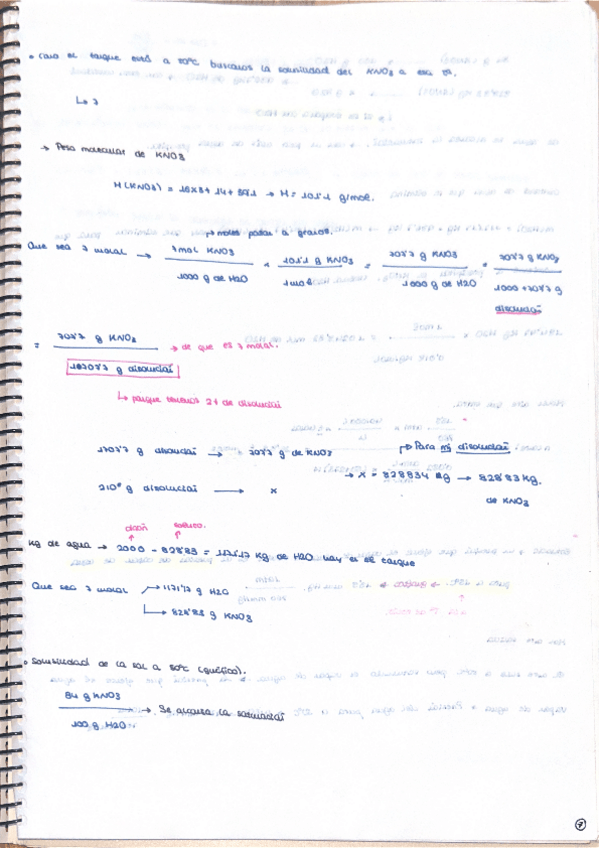 • Como el tanque está a 50ºC buscamos la solubilidad del KNO3 a esa tª.
↳ 7
→ Peso molecular de KNO3
M(KNO3) = 16x3 + 14 + 39'1 → M = 101'1 g/mol.
↱ moles pasar a gramos.
Que sea 7 molal → 7 mol KNO3 / 1000 g de H2O × 101'1 g KNO3 / 1 mol = 707'7 g KNO3 / 1000 g de H2O = 707'7 g KNO3 / 1000 + 707'7 g disolución
= 707'7 g KNO3 / 1707'7 g disolución → de que es 7 molal.
↳ porque tenemos 2t de disolución
1707'7 g disolución → 707'7 g de KNO3
↱ Para mi disolución
2·10⁶ g disolución → x
→ x = 828834 g → 828'83 Kg. de KNO3
disoln soluto.
Kg de agua → 2000 - 828'83 = 1171'17 Kg de H2O hay en el tanque
Que sea 7 molal → 1171'17 g H2O
↳ 828'83 g KNO3
• Solubilidad de la sal a 50ºC (gráfico).
84 g KNO3 / 100 g H2O → Se alcanza la saturación
7